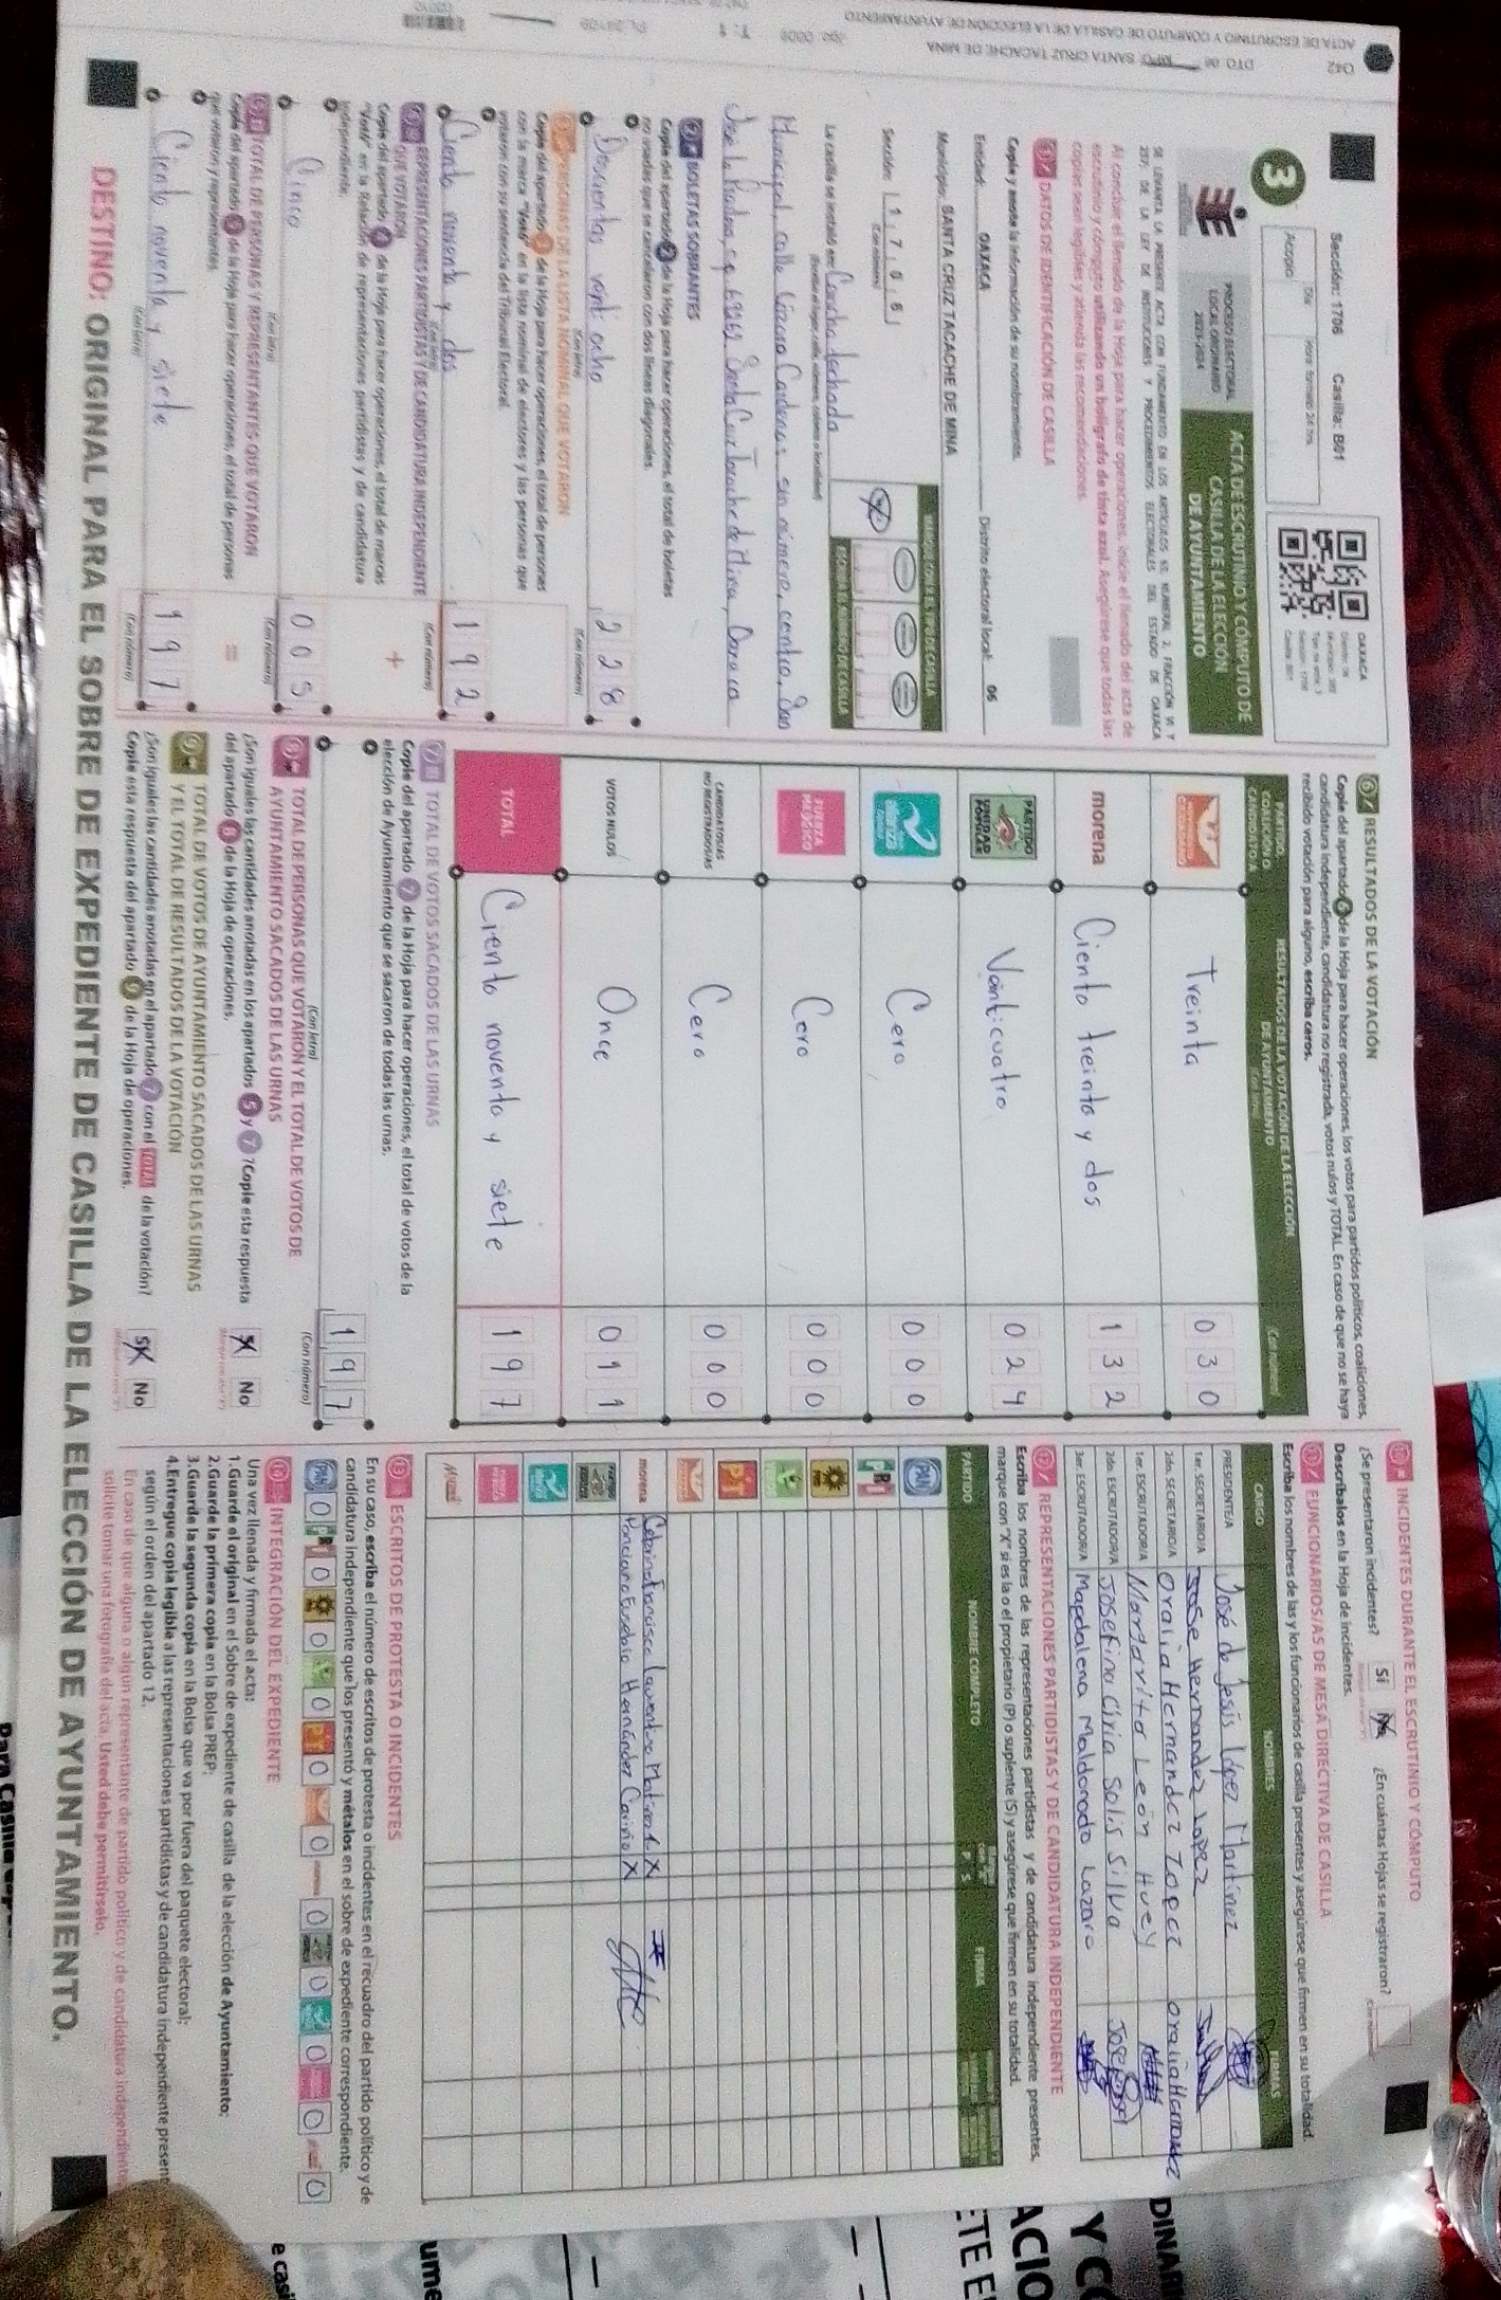 3
Sección: 1706 Casilla: B01
Acopio
PROCESO ELECTORAL
LOCAL ORDINARIO
2023-2024
ACTA DE ESCRUTINIO Y CÓMPUTO DE
CASILLA DE LA ELECCIÓN
DE AYUNTAMIENTO
OAXACA
Al concluir el llenado de la Hoja para hacer operaciones, inicie el llenado del acta de
escrutinio y cómputo utilizando un bolígrafo de tinta azul. Asegúrese que todas las
copias sean legibles y atienda las recomendaciones.
1 DATOS DE IDENTIFICACIÓN DE CASILLA
Copie y anote la información de su nombramiento.
Entidad: OAXACA Distrito electoral local: 06
Municipio: SANTA CRUZ TACACHE DE MINA
Sección: 1706
(Con número)
MARQUE CON X EL TIPO DE CASILLA
ESCRIBA EL NÚMERO DE CASILLA
La casilla se instaló en: Cancha techada
Municipal, calle Lázaro Cardenas, sin número, centro, San
José la Pradera, c.p 69269 Santa Cruz Tacache de Mina, Oaxaca
2 BOLETAS SOBRANTES
Copie del apartado 2 de la Hoja para hacer operaciones, el total de boletas
no usadas que se cancelaron con dos líneas diagonales.
Doscientas veintiocho 228
(Con letra) (Con número)
3 PERSONAS DE LA LISTA NOMINAL QUE VOTARON
Copie del apartado 3 de la Hoja para hacer operaciones, el total de personas
con la marca "Votó" en la lista nominal de electores y las personas que
votaron con su sentencia del Tribunal Electoral.
Ciento noventa y dos 192
(Con letra) (Con número)
4 REPRESENTACIONES PARTIDISTAS Y DE CANDIDATURA INDEPENDIENTE
QUE VOTARON
Copie del apartado 4 de la Hoja para hacer operaciones, el total de marcas
"Votó" en la Relación de representaciones partidistas y de candidatura
independiente.
+
Cinco 005
(Con letra) (Con número)
5 TOTAL DE PERSONAS Y REPRESENTANTES QUE VOTARON
Copie del apartado 5 de la Hoja para hacer operaciones, el total de personas
que votaron y representantes.
=
Ciento noventa y siete 197
(Con letra) (Con número)
6 RESULTADOS DE LA VOTACIÓN
Copie del apartado 6 de la Hoja para hacer operaciones, los votos para partidos políticos, coaliciones,
candidatura independiente, candidatura no registrada, votos nulos y TOTAL. En caso de que no se haya
recibido votación para alguno, escriba ceros.
PARTIDO, COALICIÓN O CANDIDATURA
RESULTADOS DE LA VOTACIÓN DE LA ELECCIÓN
DE AYUNTAMIENTO
Treinta 030
morena Ciento treinta y dos 132
PARTIDO UNIDAD POPULAR Veinticuatro 024
Cero 000
FUERZA MÉXICO Cero 000
CANDIDATOS/AS NO REGISTRADOS/AS Cero 000
VOTOS NULOS Once 011
TOTAL Ciento noventa y siete 197
7 TOTAL DE VOTOS SACADOS DE LAS URNAS
Copie del apartado 7 de la Hoja para hacer operaciones, el total de votos de la
elección de Ayuntamiento que se sacaron de todas las urnas.
197
(Con letra) (Con número)
8 TOTAL DE PERSONAS QUE VOTARON Y EL TOTAL DE VOTOS DE
AYUNTAMIENTO SACADOS DE LAS URNAS
¿Son iguales las cantidades anotadas en los apartados 5 y 7? Copie esta respuesta
del apartado 8 de la Hoja de operaciones. No
9 TOTAL DE VOTOS DE AYUNTAMIENTO SACADOS DE LAS URNAS
Y EL TOTAL DE RESULTADOS DE LA VOTACIÓN
¿Son iguales las cantidades anotadas en el apartado 7 con el TOTAL de la votación?
Copie esta respuesta del apartado 9 de la Hoja de operaciones. Sí No
10 INCIDENTES DURANTE EL ESCRUTINIO Y CÓMPUTO
¿Se presentaron incidentes? Sí No ¿En cuántas Hojas se registraron?
Descríbalos en la Hoja de incidentes.
11 FUNCIONARIOS/AS DE MESA DIRECTIVA DE CASILLA
Escriba los nombres de las y los funcionarios de casilla presentes y asegúrese que firmen en su totalidad.
CARGO NOMBRES FIRMAS
PRESIDENTE/A José de Jesús López Martínez
1er. SECRETARIO/A José Hernandez Lopez
2do. SECRETARIO/A Oralia Hernandez Lopez
1er. ESCRUTADOR/A Margarita León Huey
2do. ESCRUTADOR/A Josefina Ciria Solis Silva
3er. ESCRUTADOR/A Magdalena Maldonado Lazaro
12 REPRESENTACIONES PARTIDISTAS Y DE CANDIDATURA INDEPENDIENTE
Escriba los nombres de las representaciones partidistas y de candidatura independiente presentes,
marque con "X" si es la o el propietario (P) o suplente (S) y asegúrese que firmen en su totalidad.
PARTIDO NOMBRE COMPLETO P S FIRMA
PAN
PRI
PRD
PT
morena X
Ponciano Eusebio Hernández Cariño X
13 ESCRITOS DE PROTESTA O INCIDENTES
En su caso, escriba el número de escritos de protesta o incidentes en el recuadro del partido político y de
candidatura independiente que los presentó y métalos en el sobre de expediente correspondiente.
PAN 0 PRI 0 0 0 PT 0 0 0 0 0 0 0
14 INTEGRACIÓN DEL EXPEDIENTE
Una vez llenada y firmada el acta:
1. Guarde el original en el Sobre de expediente de casilla de la elección de Ayuntamiento;
2. Guarde la primera copia en la Bolsa PREP;
3. Guarde la segunda copia en la Bolsa que va por fuera del paquete electoral;
4. Entregue copia legible a las representaciones partidistas y de candidatura independiente present
según el orden del apartado 12.
En caso de que alguna o algún representante de partido político y de candidatura independiente
solicite tomar una fotografía del acta. Usted debe permitírselo.
DESTINO: ORIGINAL PARA EL SOBRE DE EXPEDIENTE DE CASILLA DE LA ELECCIÓN DE AYUNTAMIENTO.